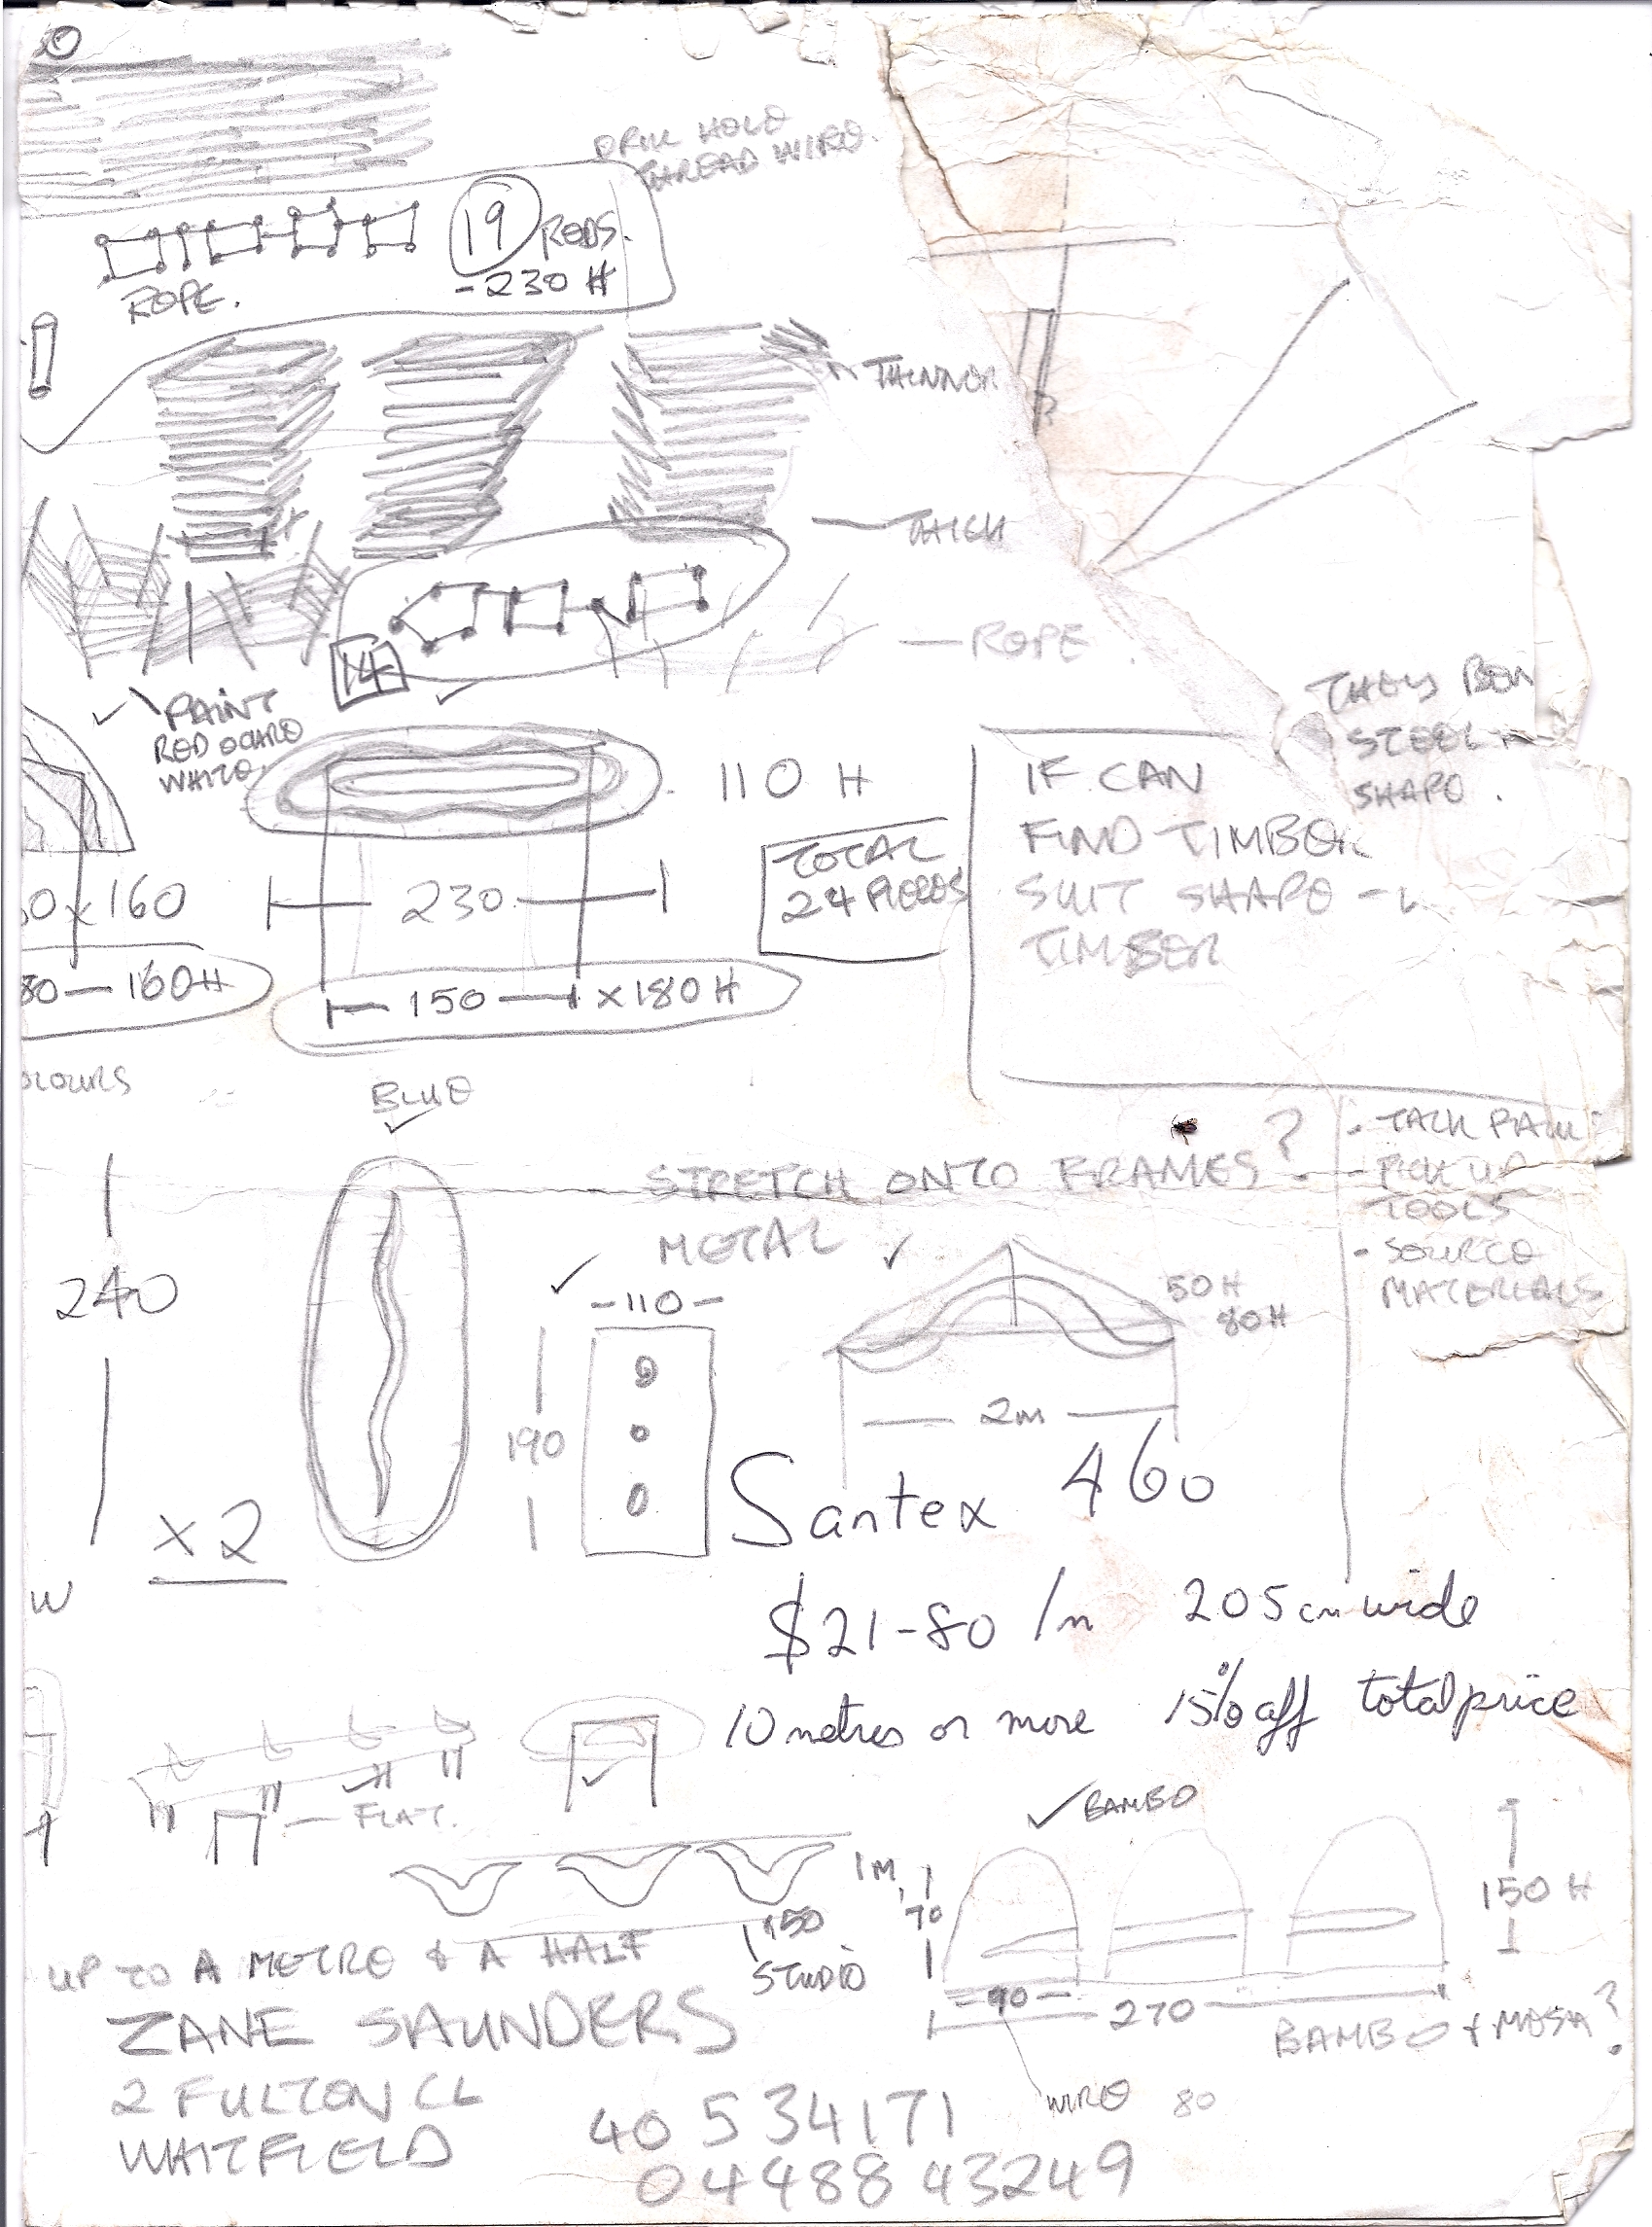 DRILL HOLE
THREAD WIRE.
19 RODS.
-230 H
ROPE.
THINNER
THICK
ROPE
14
PAINT
RED OCHRE
WHITE
THEN
STEEL
SHAPE.
110 H
IF CAN
FIND TIMBER
SUIT SHAPE -
TIMBER
TOTAL
24 PIECES
0 x 160
230
80 — 160H
150 x 180 H
OLOURS
BLUE
STRETCH ONTO FRAMES?
METAL
• TALK PAUL
- PICK UP
TOOLS
• SOURCE
MATERIALS
240
-110-
50H
80H
190
2m
x2
Santex 460
$21-80 /m 205cm wide
10 metres or more 15% off total price
W
FLAT.
BAMBO
1M,
70
150 H
150
STUDIO
UP TO A METRE & A HALF
90
270
BAMBO + MESH?
ZANE SAUNDERS
2 FULTON CL
WHITFIELD
WIRE 80
40 534171
04488 43249